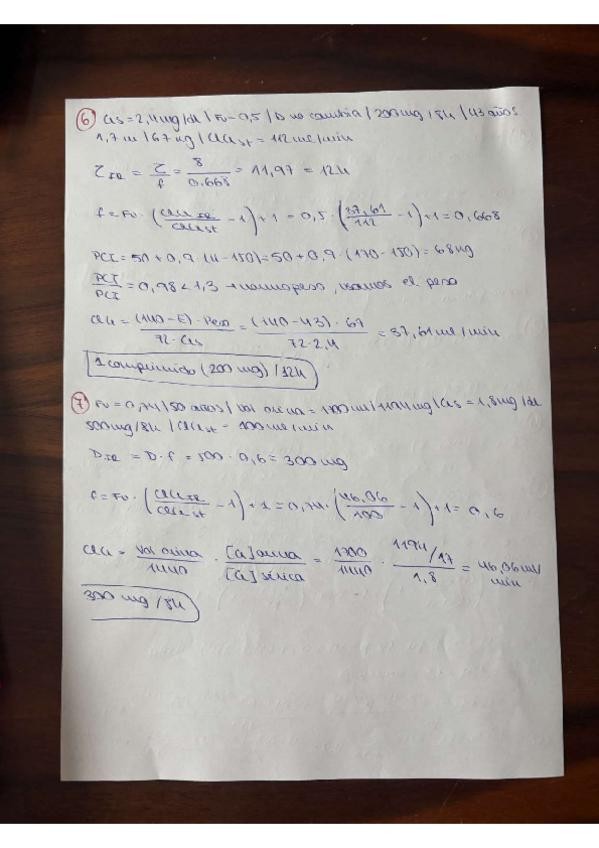 6 Cls = 2,4 mg/dl / Fu = 0,5 / D no cambia / 200 mg / 8h / 43 años
1,7 m / 67 kg / ClCr st = 112 ml/min
τ IR = τ/f = 8/0,668 = 11,97 ≈ 12h
f = Fu · (ClCr IR/ClCr st - 1) + 1 = 0,5 · (37,61/112 - 1) + 1 = 0,668
PCI = 50 + 0,9 · (H - 150) = 50 + 0,9 · (170 - 150) = 68 kg
PCT/PCI = 0,98 < 1,3 → normopeso, usamos el peso
ClCr = (140 - E) · Peso/72 · Cls = (140 - 43) · 67/72 · 2,4 = 37,61 ml/min
1 comprimido (200 mg) / 12h
7 Fu = 0,74 / 50 años / Vol orina = 1700 ml / 1194 mg / Cls = 1,8 mg/dl
500 mg / 8h / ClCr st = 100 ml/min
D IR = D · f = 500 · 0,6 = 300 mg
f = Fu · (ClCr IR/ClCr st - 1) + 1 = 0,74 · (46,06/100 - 1) + 1 = 0,6
ClCr = Vol orina/1440 · [Cr] orina/[Cr] sérica = 1700/1440 · 1194/17/1,8 = 46,06 ml/
min
300 mg / 8h